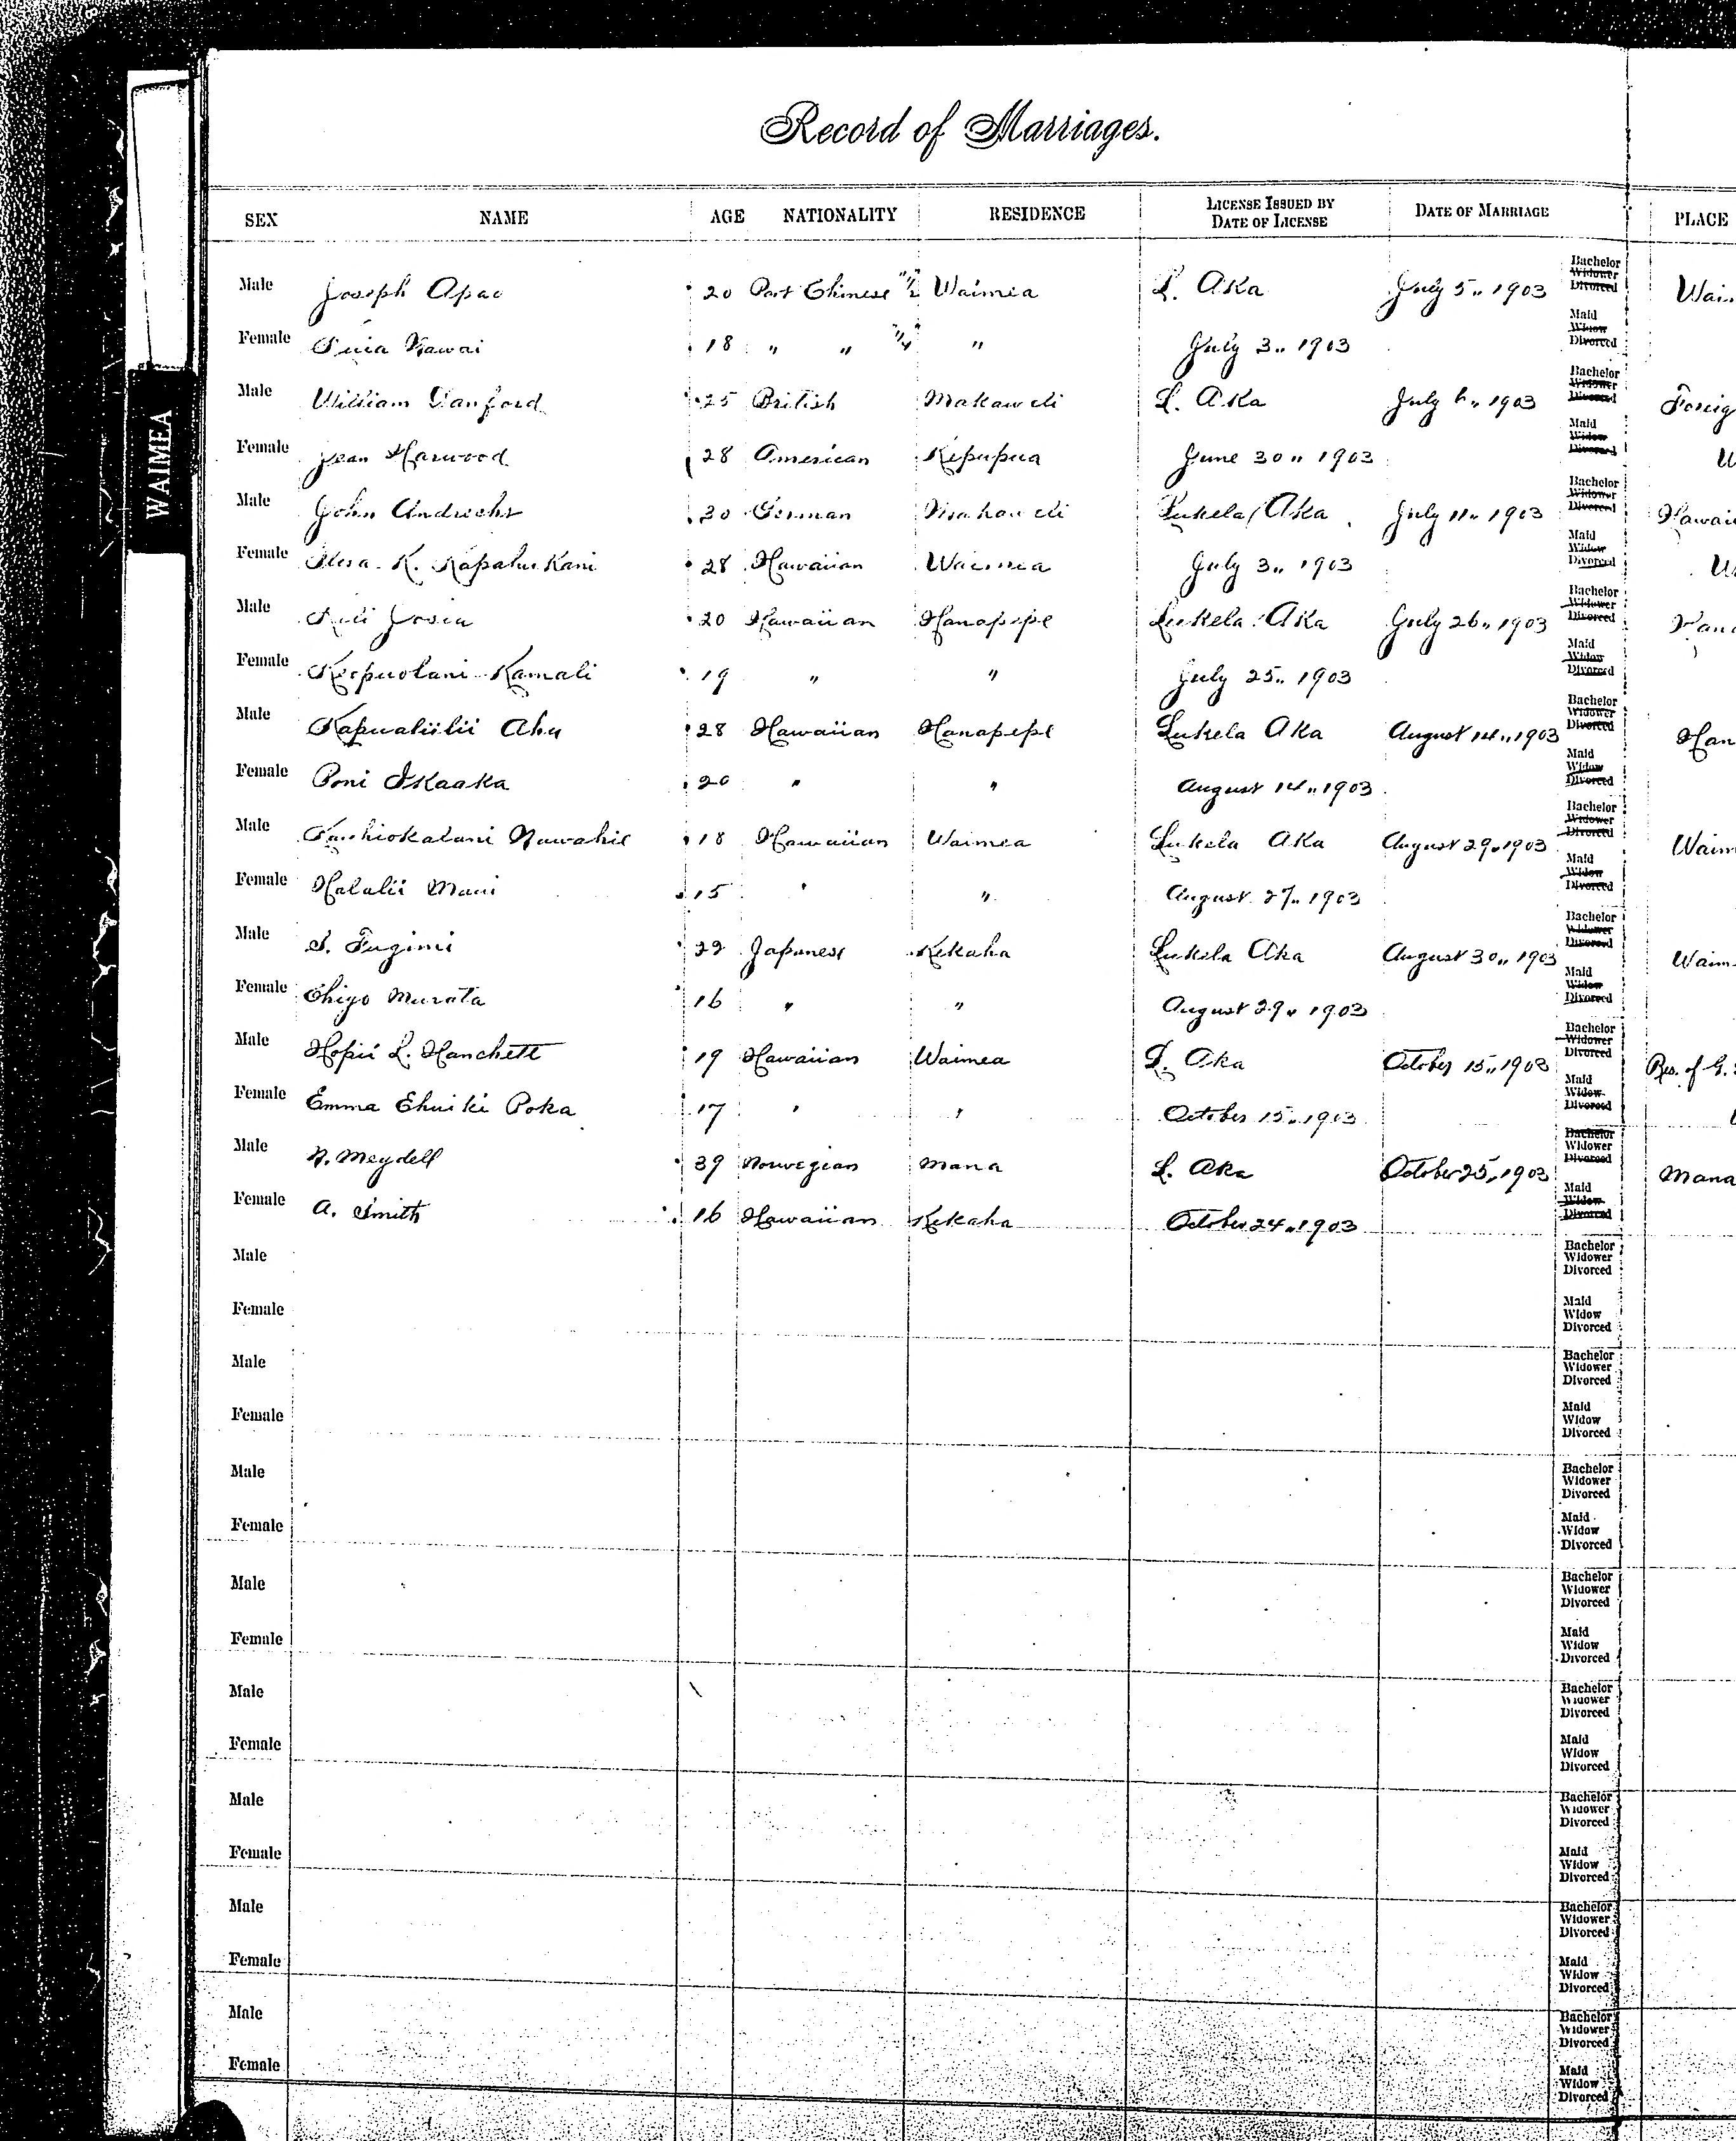 WAIMEA
Record of Marriages.
SEX NAME AGE NATIONALITY RESIDENCE LICENSE ISSUED BY DATE OF LICENSE DATE OF MARRIAGE PLACE
Male Joseph Apao 20 Part Chinese "1/2 Waimea L. Aka July 5" 1903 Bachelor Widower Divorced Wai
Female Kawai 18 " " "1/4 " July 3" 1903 Maid Widow Divorced
Male William Danford 25 British Makaweli L. Aka July 6" 1903 Bachelor Widower Divorced Foreig
Female Jean Harwood 28 American June 30" 1903 Maid Widow Divorced
Male John 30 German Lukela Aka July 11" 1903 Bachelor Widower Divorced Hawaii
Female K. Kapahukani 28 Hawaiian Waimea July 3" 1903 Maid Widow Divorced
Male Josia 20 Hawaiian Hanapepe Lukela Aka July 26" 1903 Bachelor Widower Divorced
Female Keopuolani Kamali 19 " " July 25" 1903 Maid Widow Divorced
Male Kapualiilii Ahu 28 Hawaiian Hanapepe Lukela Aka August 14" 1903 Bachelor Widower Divorced Han
Female Poni IKaaka 20 " " August 14" 1903 Maid Widow Divorced
Male Nawahie 18 Hawaiian Waimea Lukela Aka August 29" 1903 Bachelor Widower Divorced Waim
Female Halalii Maui 15 " " August 27" 1903 Maid Widow Divorced
Male S. Fugimi 22 Japanese Kekaha Lukela Aka August 30" 1903 Bachelor Widower Divorced Waim
Female Chiyo Murata 16 " " August 29" 1903 Maid Widow Divorced
Male Hopii L. Hanchett 19 Hawaiian Waimea L. Aka October 15" 1903 Bachelor Widower Divorced Res. of G.
Female Emma Ehuiki Poka 17 " " October 15" 1903 Maid Widow Divorced
Male Meydell 39 Norwegian Mana L. Aka October 25" 1903 Bachelor Widower Divorced Mana
Female A. Smith 16 Hawaiian Kekaha October 24" 1903 Maid Widow Divorced
Male Bachelor Widower Divorced
Female Maid Widow Divorced
Male Bachelor Widower Divorced
Female Maid Widow Divorced
Male Bachelor Widower Divorced
Female Maid Widow Divorced
Male Bachelor Widower Divorced
Female Maid Widow Divorced
Male Bachelor Widower Divorced
Female Maid Widow Divorced
Male Bachelor Widower Divorced
Female Maid Widow Divorced
Male Bachelor Widower Divorced
Female Maid Widow Divorced
Male Bachelor Widower Divorced
Female Maid Widow Divorced